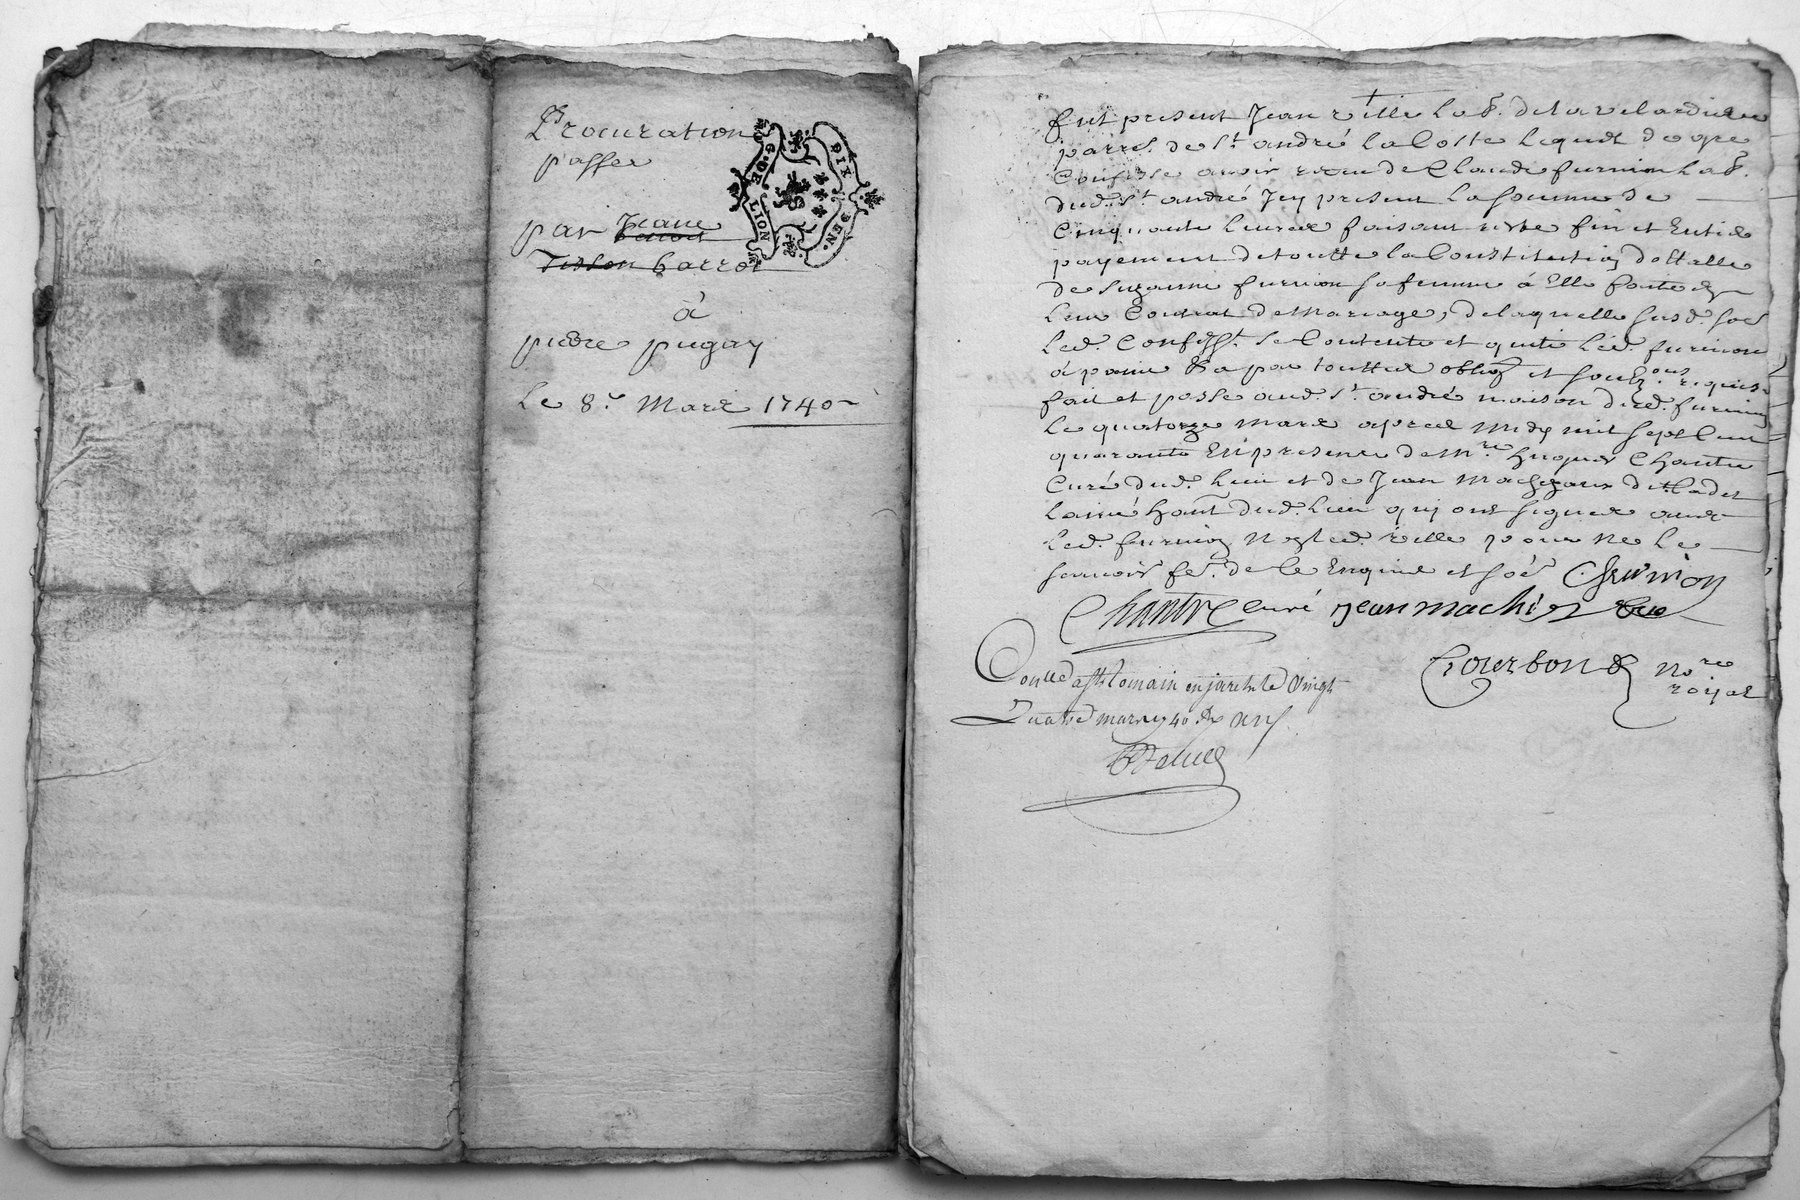 Procuration
passee
par Jeane
benoit
Tisson barrot
à
pierre pugay
Le 8.e Mars 1740
G. DE LION
DIX DEN.
fut present Jean rille lab.r de la velardiere
parr.e de s.t andré la Coste lequel de gre
Confesse avoir receu de Claude furnion lab.r
dud. s.t andré Icy present la somme de
Cinquante livres faisant reste fin et Entier
payement de toutte la Constitution dottalle
de suzanne furnion sa femme à Elle faite
leur Contrat de Mariage, de laquelle susd. so.e
led. Confess.t se Contente et quite led. furnion
à peine &a par touttes oblig et soub.ons requises
fait et passé aud. s.t andré maison dud. furnion
le quatorze mars apres midy mil sept Cent
quarante En presence de M.re hugues Chantre
Curé dud. lieu et de Jean Machizaux dit Cadet
laîné hant dud. lieu qui ont signes avec
led. furnion Non led. rille pour ne le
scavoir fe. de Ce Enquis et so.e C furnion
Chantre curé Jean machi
Gourbon N.re
royal
Con.lle a s.t romain en jarest le vingt
Quatre mars 1740 dix